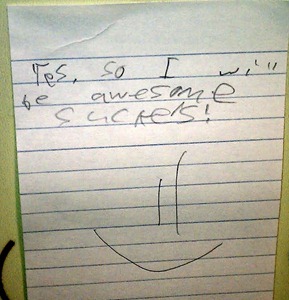 Yes, so I will
be awesome
suckers!